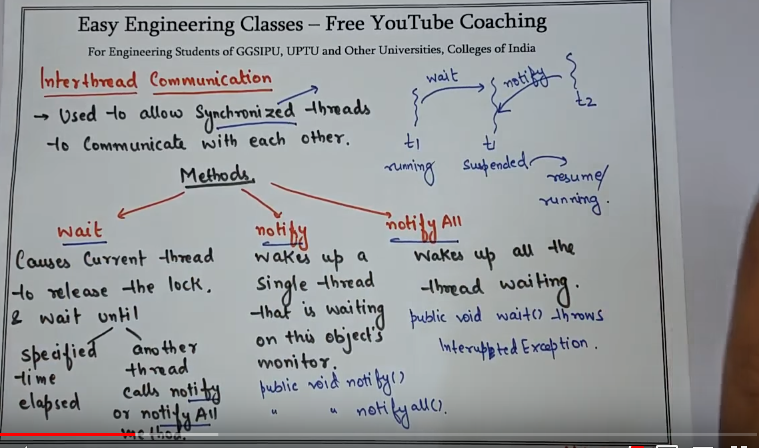 Easy Engineering Classes – Free YouTube Coaching
For Engineering Students of GGSIPU, UPTU and Other Universities, Colleges of India
Interthread Communication
→ Used to allow Synchronized threads
to Communicate with each other.
wait
notify
t1
t1
t2
running
suspended
resume/
running.
Methods.
wait
Causes Current thread
to release the lock.
& wait until
specified
time
elapsed
another
thread
calls notify
or notify All
method.
notify
wakes up a
single thread
that is waiting
on this object's
monitor.
public void notify()
" " notifyall().
notify All
Wakes up all the
thread waiting.
public void wait() throws
InteruptedException.